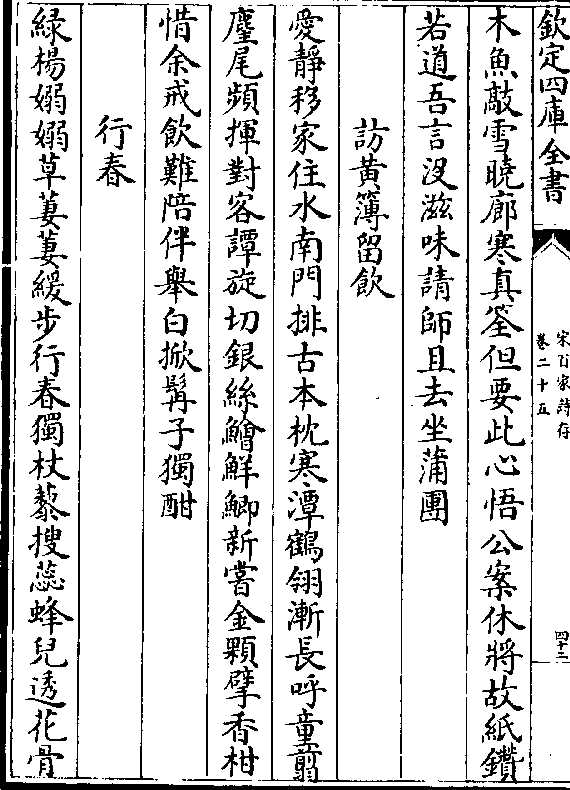 欽定四庫全書
宋百家詩存
卷二十五
四十二
木魚敲雪曉廊寒真筌但要此心悟公案休將故紙鑽
若道吾言没滋味請師且去坐蒲團
訪黄簿留飲
愛靜移家住水南門排古本枕寒潭鶴翎漸長呼童翦
麈尾頻揮對客譚旋切銀絲鱠鮮鯽新嘗金顆擘香柑
惜余戒飲難陪伴舉白掀髯子獨酣
行春
緑楊嫋嫋草萋萋緩步行春獨杖藜搜蕊蜂兒透花骨